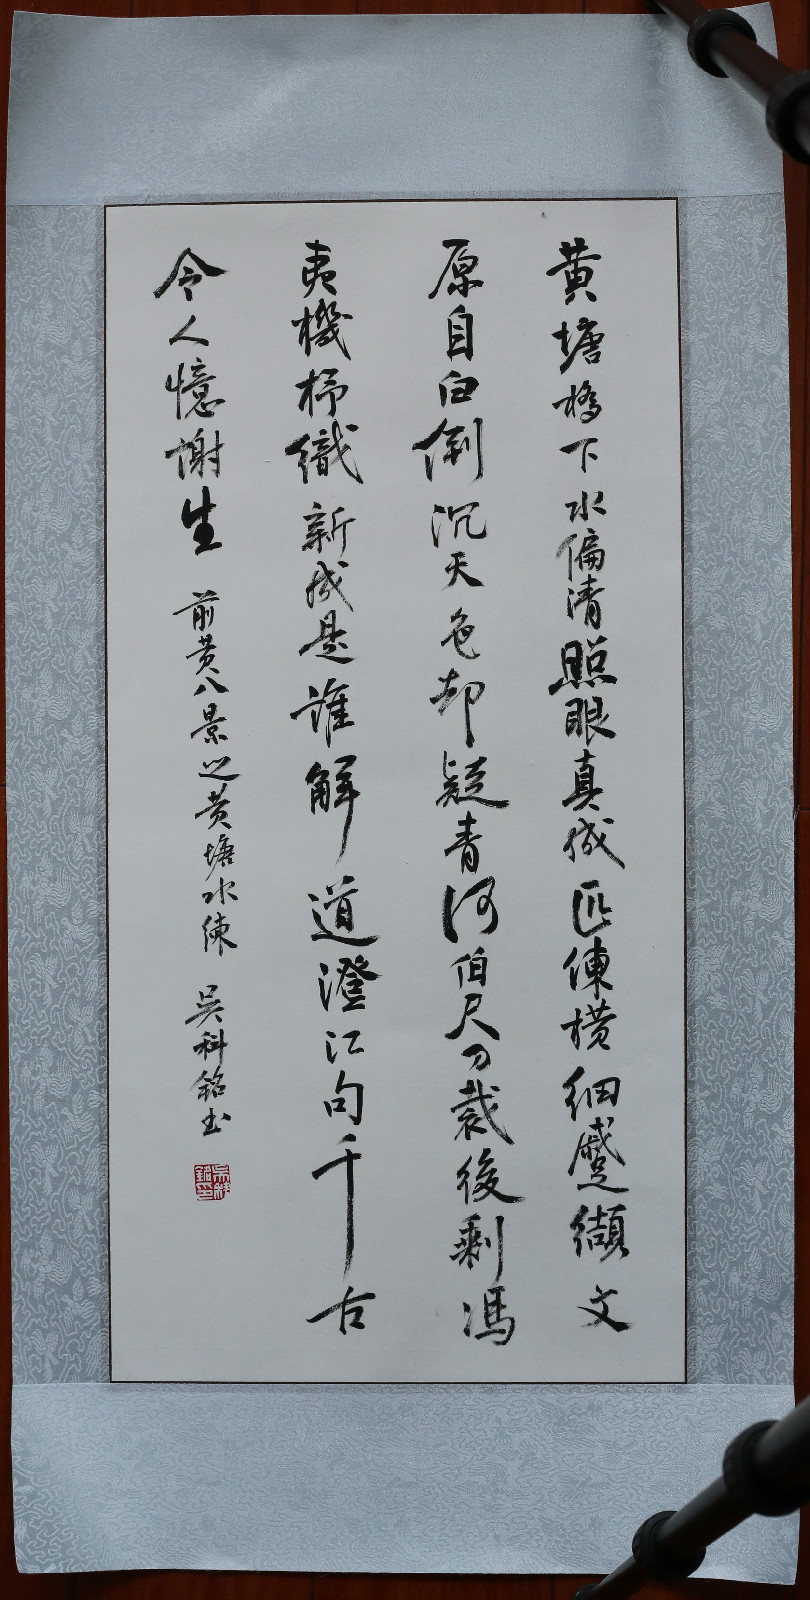 黄塘橋下水偏清照眼真成匹練横細蹙纈文
原自白倒沉天色却疑青河伯尺刀裁後剩馮
夷機杼織新成是誰解道澄江句千古
令人憶謝生 前黄八景之黄塘水練 吴科銘书
吴科銘印